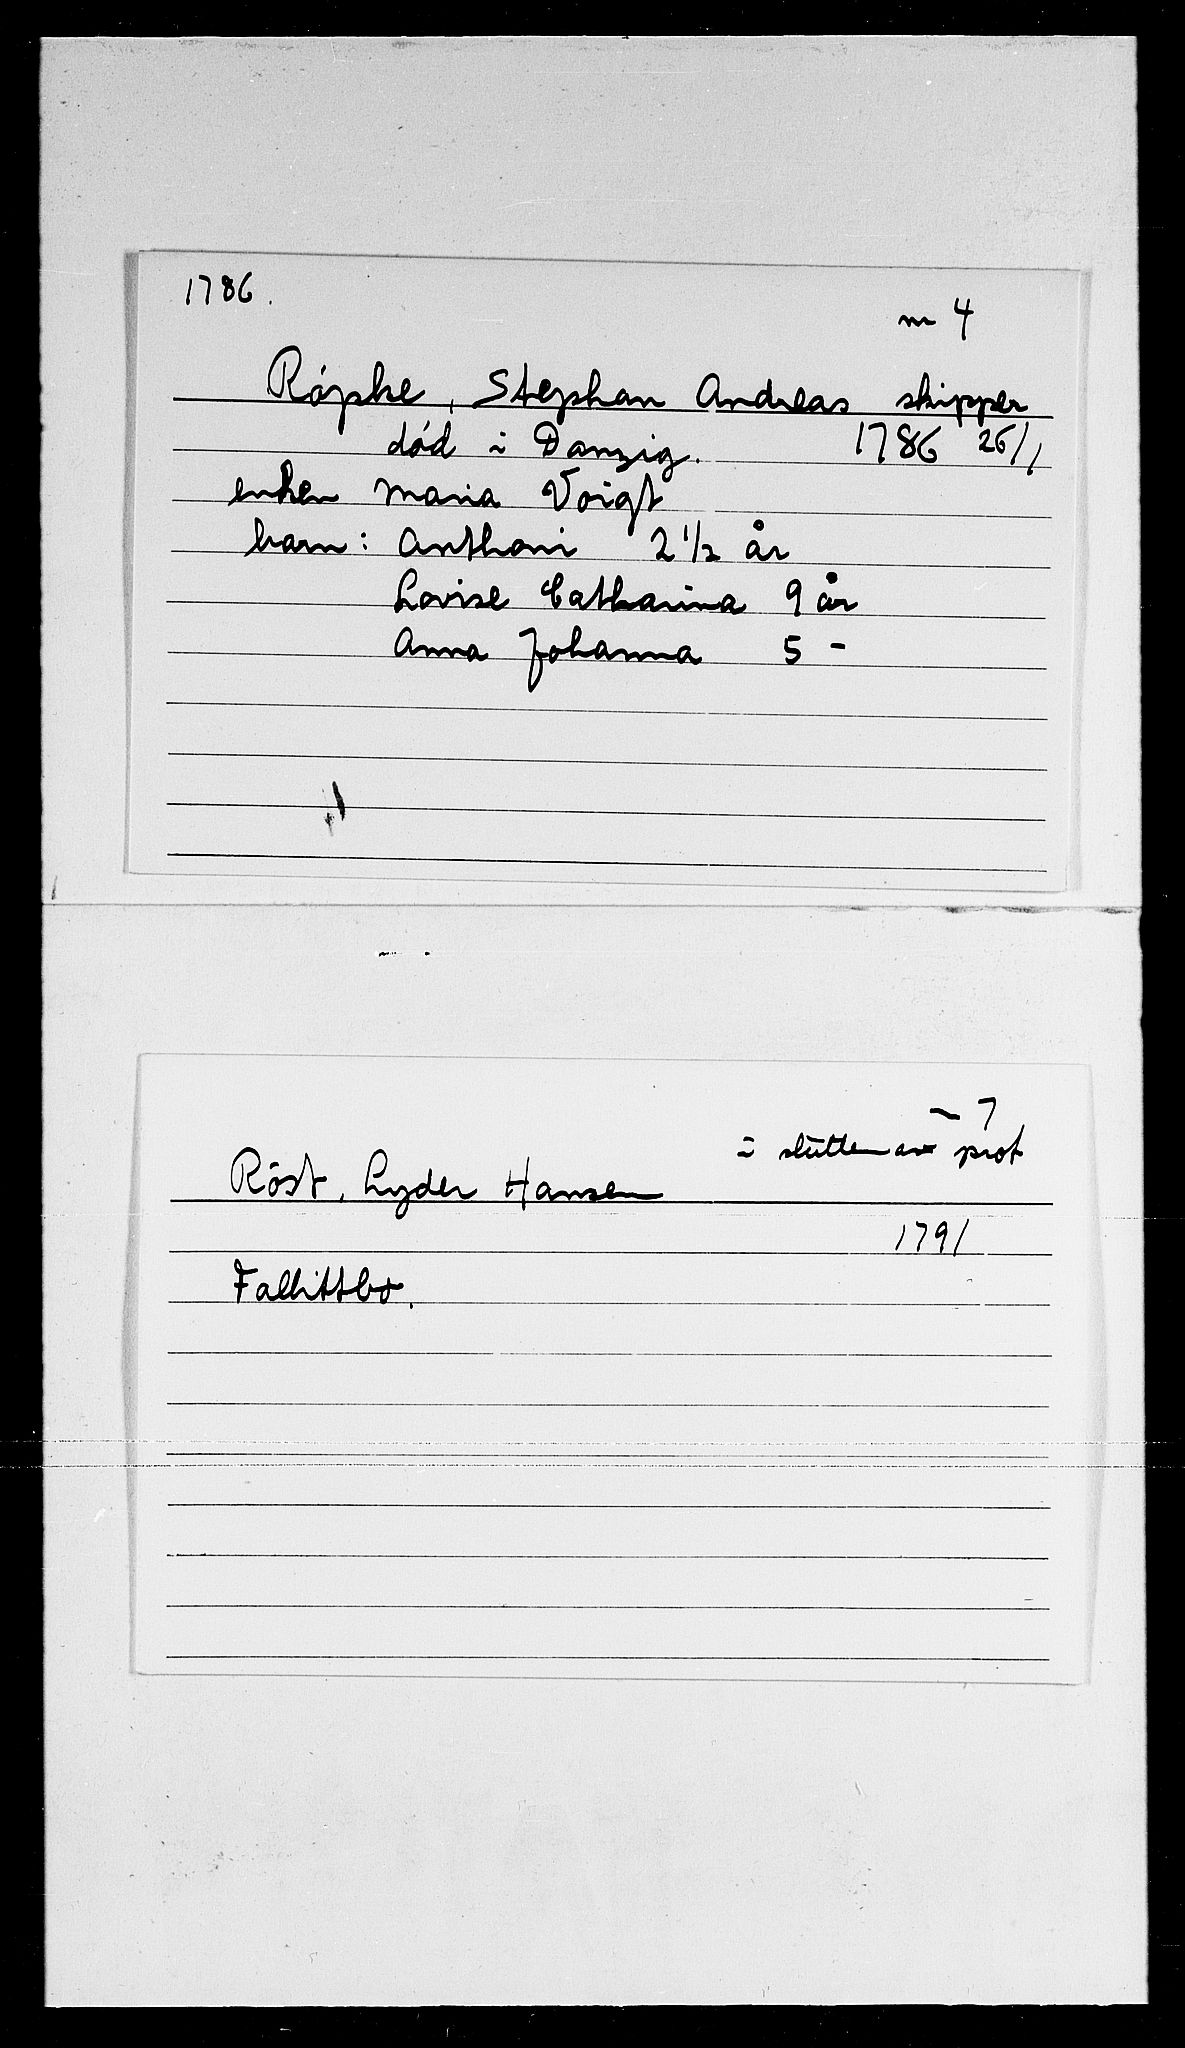 1786.
nr 4
Röpke, Stephan Andreas skipper
död i Danzig. 1786 26/1
enken Maria Voigt
barn: Anthoni 2 1/2 år
Lovise Catharina 9 år
Anna Johanna 5 -
7
i slutten av prot
Röst, Lyder Hansen
1791
Fallittbo.